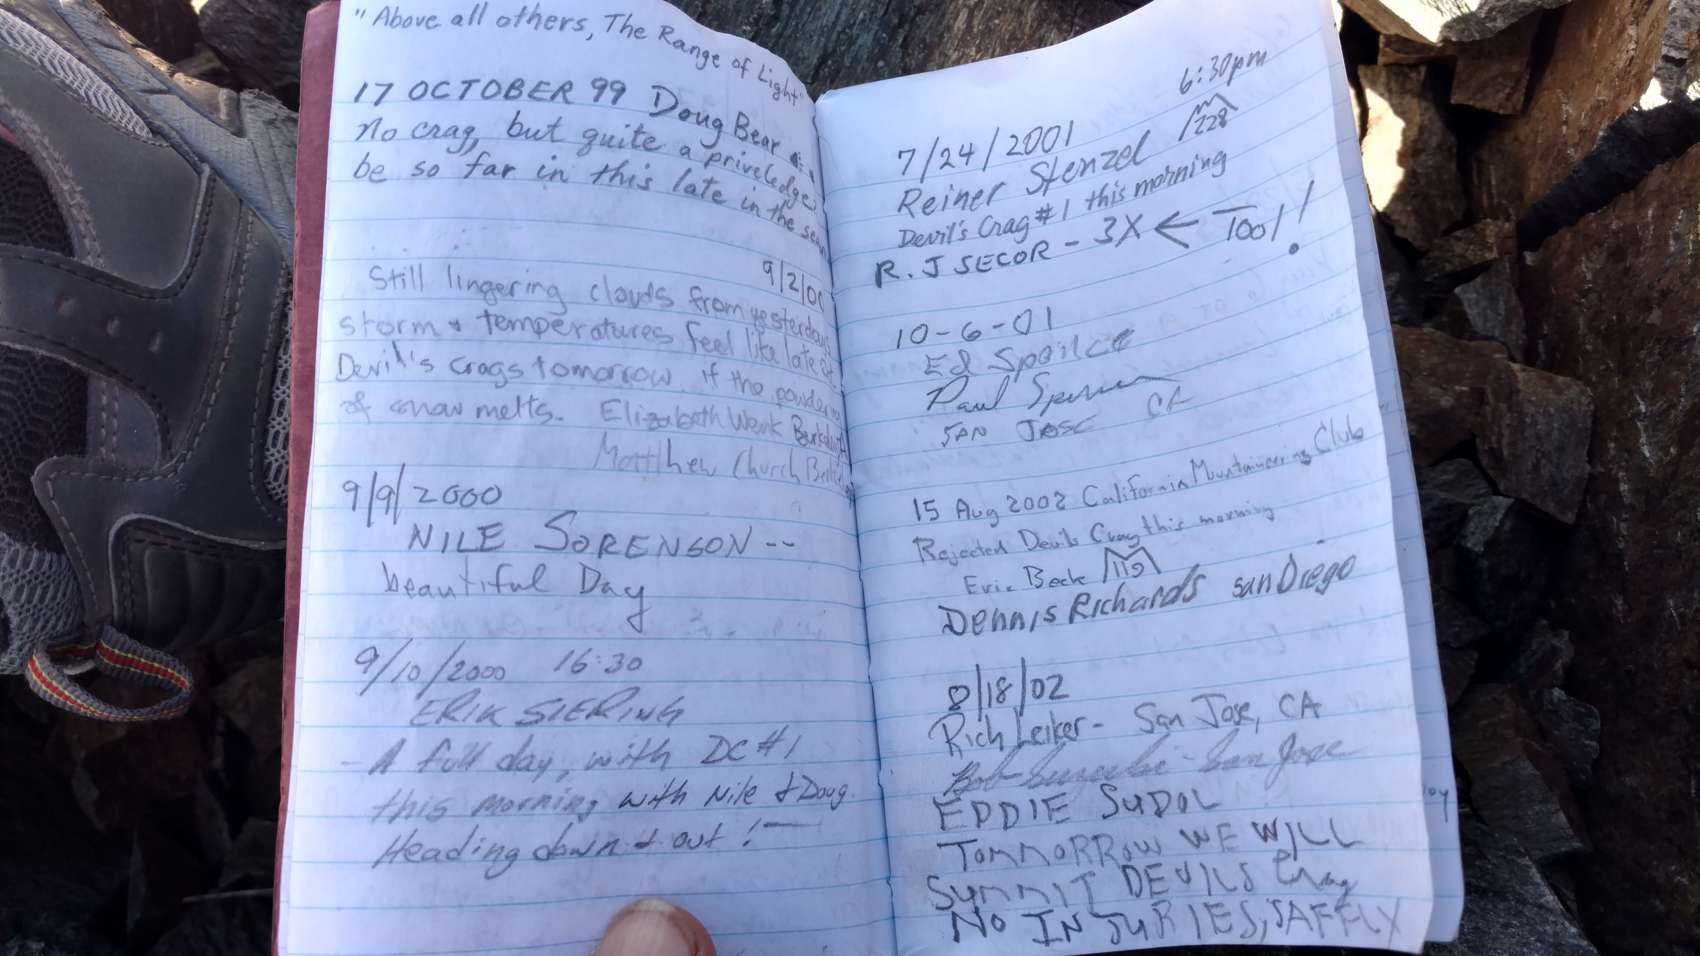 "Above all others, The Range of Light"
17 OCTOBER 99 Doug Bear
no crag, but quite a priveledge
be so far in this late in the
9/2/00
Still lingering clouds from yesterday's
storm + temperatures feel like late
Devil's Crags tomorrow if the
of snow melts. Elizabeth Wenk
Matthew Church
9/9/2000
NILE SORENSON --
beautiful Day
9/10/2000 16:30
ERIK SIERING
- A full day, with DC #1
this morning with Nile & Doug
Heading down & out!
6:30pm
7/24/2001
Reiner Stenzel 228
Devil's Crag #1 this morning
R. J SECOR - 3X ← Tool!
10-6-01
Ed
Paul
SAN JOSE CA
15 Aug 2002 California Mountaineering Club
Rejected Devils Crag this morning
Eric Beck 119
Dennis Richards San Diego
8/18/02
Rich Leiker - San Jose, CA
Bob - San Jose
EDDIE SUDOL
TOMMORROW WE WILL
SUMMIT DEVILS Crag
NO INJURIES, SAFELY